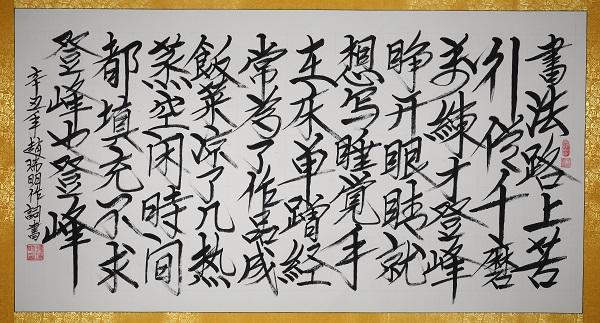 書法路上苦
引千磨
萬練才登峰
睁开眼睛就
想写睡覺手
在床单蹭經
常為了作品成
飯菜凉了几熱
蒸空闲時間
都填充不求
登峰也登峰
辛丑年趙瑞明作詞書